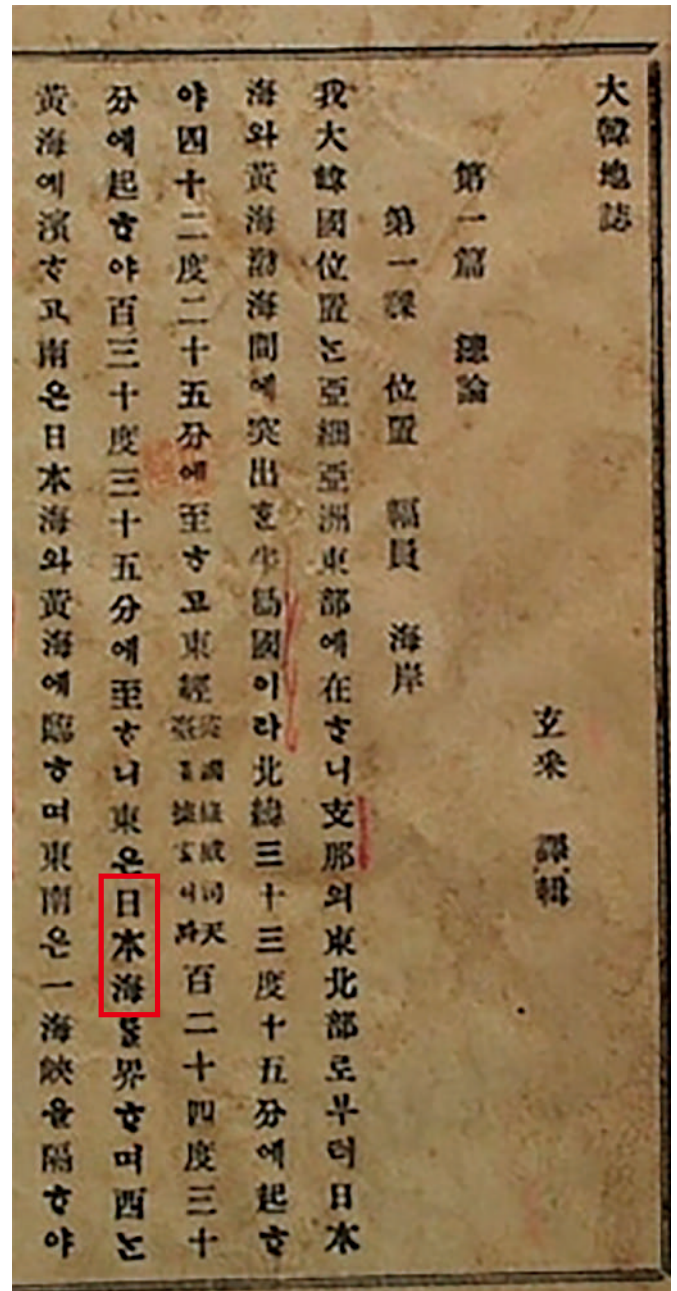 大韓地誌
玄采 譯輯
第一篇 總論
第一課 位置 幅員 海岸
我大韓國位置는亞細亞洲東部에在ᄒᆞ니支那의東北部로부터日本
海와黃海渤海間에突出ᄒᆞᆫ半島國이라北緯三十三度十五分에起ᄒᆞ
야四十二度二十五分에至ᄒᆞ고東經英國綠威司天臺를據百二十四度三十
分에起ᄒᆞ야百三十度三十五分에至ᄒᆞ니東은日本海를界ᄒᆞ며西는
黃海에濱ᄒᆞ고南은日本海와黃海에臨ᄒᆞ며東南은一海峽을隔ᄒᆞ야